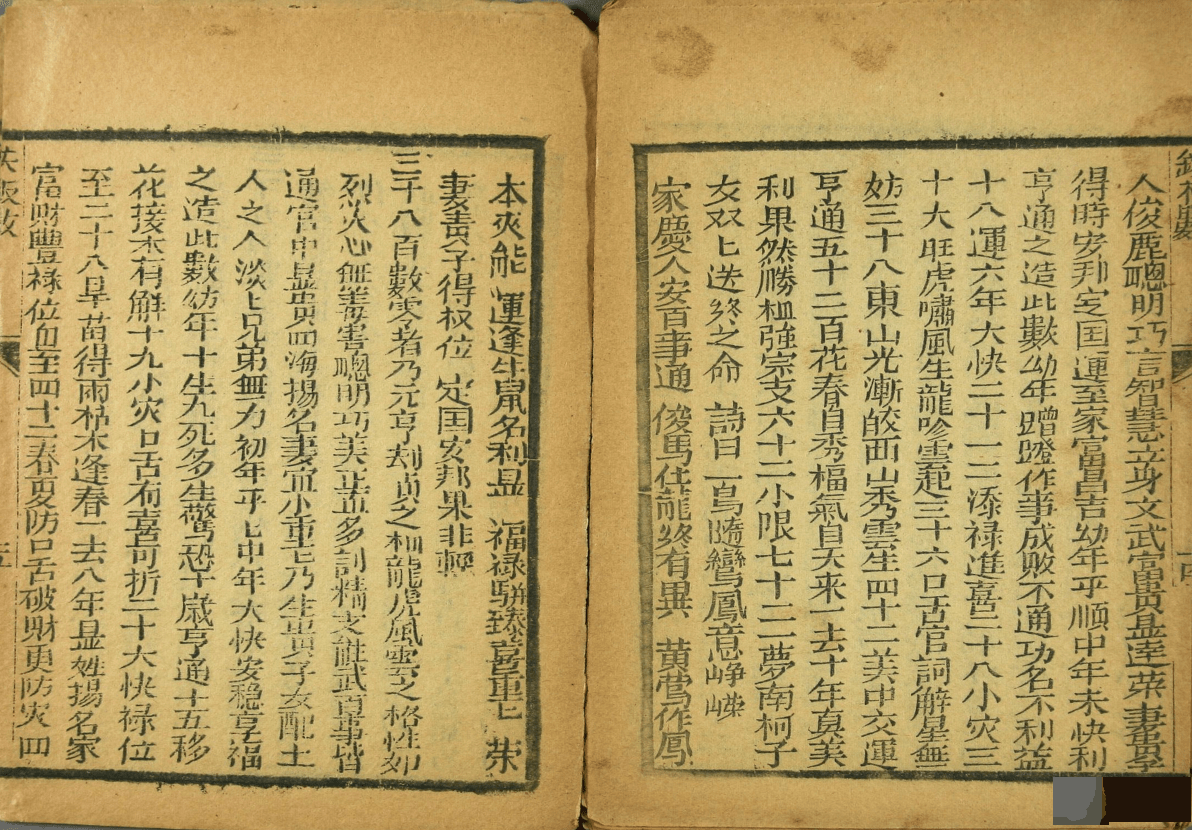 人俊麗聰明巧言智慧立身文武富貴显達荣妻貴享
得時安邦定国運至家富昌吉幼年平順中年未快利
亨通之造此數幼年蹭蹬作事成敗不通功名不利益
十八運六年大快二十一二添禄進喜二十八小灾三
十大旺虎嘯風生龍吟雲起三十六口舌官詞解星無
妨三十八東山光漸皎西山秀雲生四十二美中交運
亨通五十二百花春自秀福氣自天来一去十年真美
利果然勝祖強宗支六十二小限七十二夢南柯子
女双匕送終之命 詩曰 一鳥隨鸞鳳意崢嶸
家慶人安百事通 俊馬任龍終有異 黄鶯作鳳
本灾能 運逢牛鼠名利显 福禄駢臻喜重匕 荣
妻責子得权位 定国安邦果非輕
三千八百數雯者乃元亨利貞之相龍虎風雲之格性如
烈火心無毒害聰明巧美 多 精文能武百事皆
通官中显貴四海揚名妻宜小重匕乃生貴子女配土
人之人淡匕兄弟無力初年平匕中年大快安稳享福
之造此數幼年十生九死多生驚恐十歲亨通十五移
花接木有解十九小灾口舌有喜可折二十六快禄位
至二十八旱苗得雨枯木逢春一去八年显姓揚名家
富財豐禄位 至四十二春夏防口舌破財更防灾四